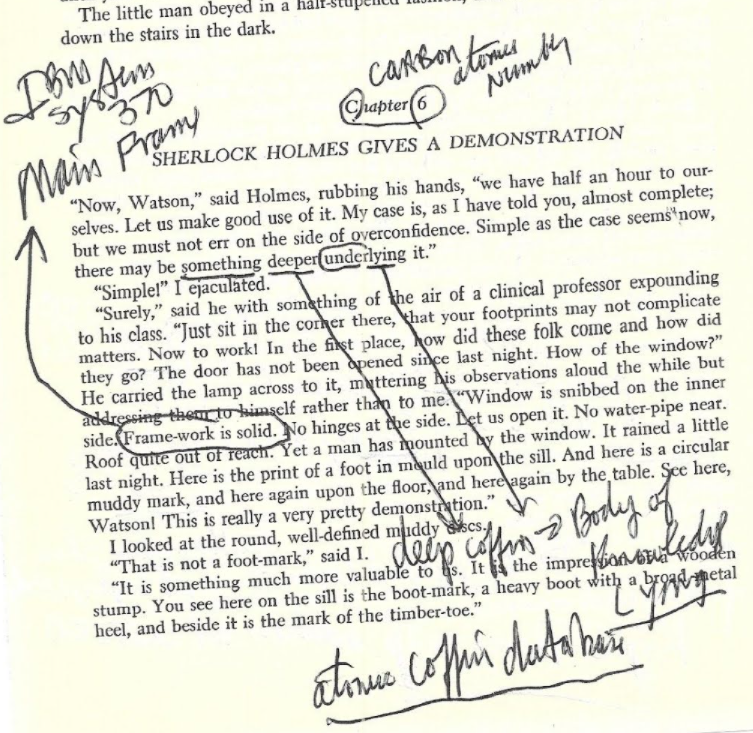 The little man obeyed in a half-stupefied fashion,
down the stairs in the dark.
CARBON atomic
Number
IBM
System
370
Main Frame
Chapter 6
SHERLOCK HOLMES GIVES A DEMONSTRATION
"Now, Watson," said Holmes, rubbing his hands, "we have half an hour to our-
selves. Let us make good use of it. My case is, as I have told you, almost complete;
but we must not err on the side of overconfidence. Simple as the case seems now,
there may be something deeper underlying it."
"Simple!" I ejaculated.
"Surely," said he with something of the air of a clinical professor expounding
to his class. "Just sit in the corner there, that your footprints may not complicate
matters. Now to work! In the first place, how did these folk come and how did
they go? The door has not been opened since last night. How of the window?"
He carried the lamp across to it, muttering his observations aloud the while but
addressing them to himself rather than to me. "Window is snibbed on the inner
side. Frame-work is solid. No hinges at the side. Let us open it. No water-pipe near.
Roof quite out of reach. Yet a man has mounted by the window. It rained a little
last night. Here is the print of a foot in mould upon the sill. And here is a circular
muddy mark, and here again upon the floor, and here again by the table. See here,
Watson! This is really a very pretty demonstration."
I looked at the round, well-defined muddy discs.
"That is not a foot-mark," said I.
deep coffins → Body of
Knowledge
Lying
"It is something much more valuable to us. It is the impression of a wooden
stump. You see here on the sill is the boot-mark, a heavy boot with a broad metal
heel, and beside it is the mark of the timber-toe."
atomic coffin database